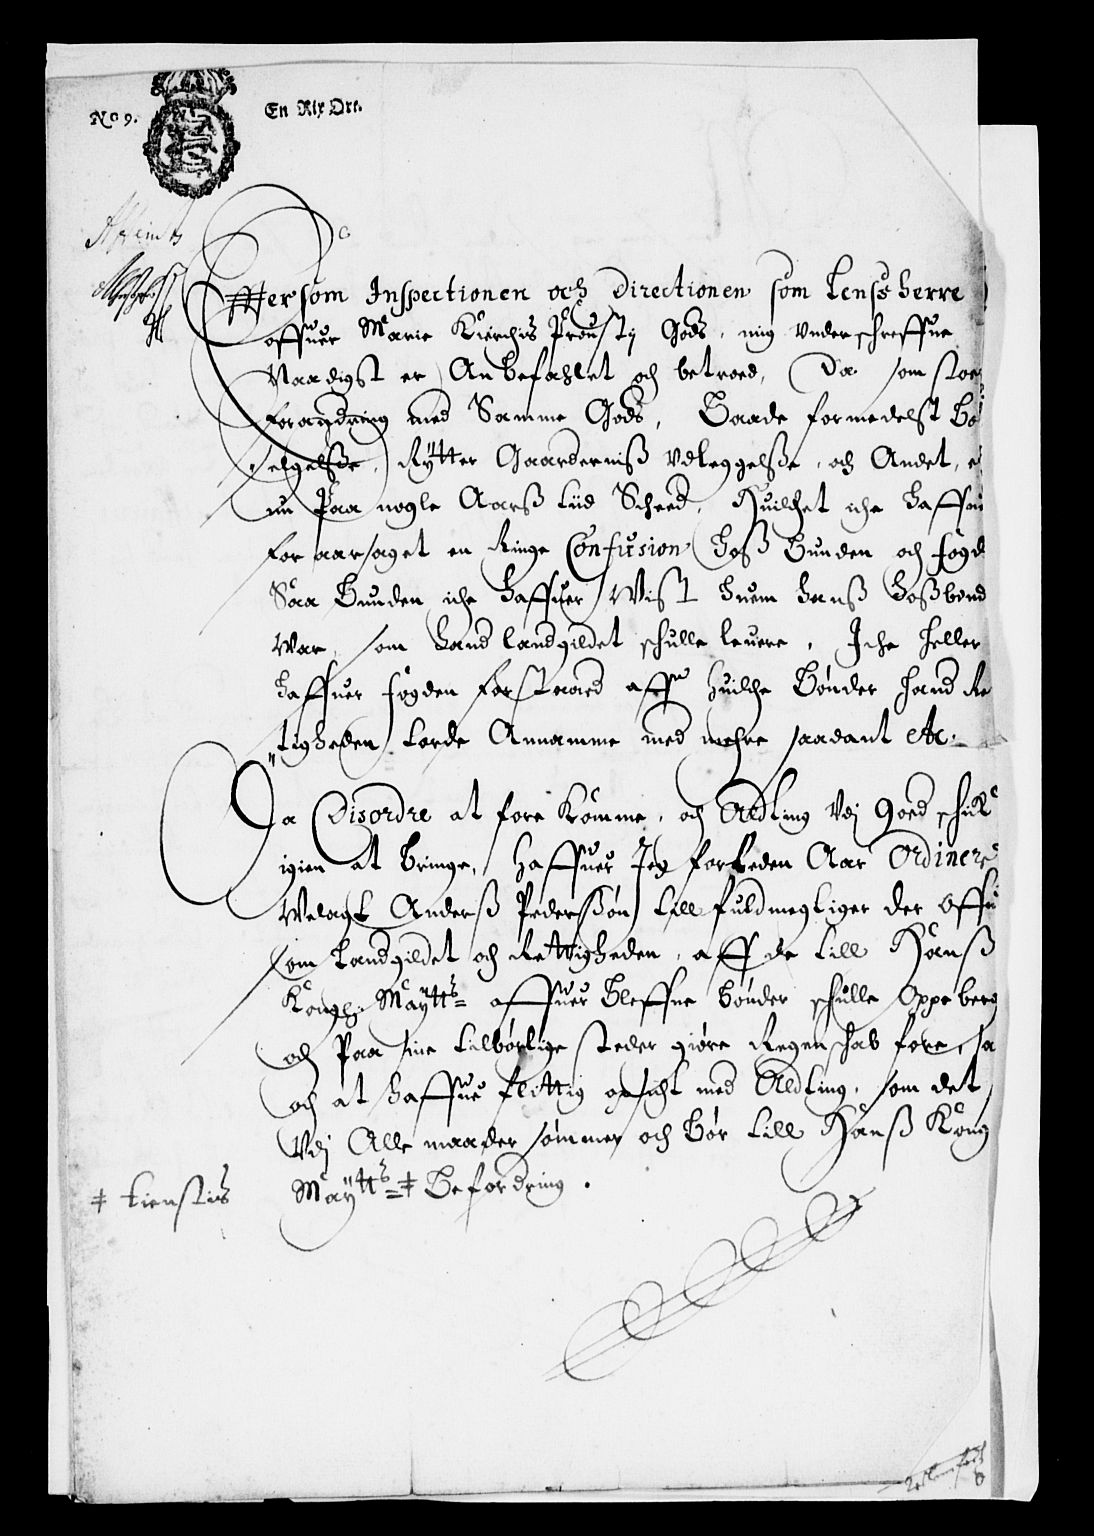 No 9. En Rix Ort.
Effter som Inspectionen och Directionen som Lenssherre
offuer Marie Kierchis Prousti Gods, mig vnderschreffne
Naadigst er Anbefahlet och betroed, Da som stoer
forandring med Samme Gods, Baade formedelst Be
selgelsse, Rytter Gaarderniss Vdleggelsse, och Andet, e
nu Paa nogle Aarss tiid Scheed, Huilchet iche haffuer
for aarsaget en Ringe Confusion hoss Bunden och fogd
Saa Bunden iche haffuer Wist huem hanss hossbond
War, som hand landgildet schulle leuere, Iche heller
haffuer fogden forstaaed aff huilche Bønder hand Re
tigheden torde Annamme med mehre saadant etc.
Da Disordre at fore komme, och Aldting Vdj goed schick
igien at bringe, haffuer Jeg forleden Aar Ordineret
Welagt Anderss Pederssøn till fuldmegtiger der offuer
som Landgildet och Rettigheden, aff de till Hanss
Kongl: Maytts offuer bleffne bønder schulle Oppeberg
och Paa sine tilbørlige steder giøre Regenschab fore, sa
och at haffue flittig opsicht med Aldting, som det
Vdj Alle maader sømmer och bør till Hanss Kong
Maytts ‡ Befordring.
‡ tienstis